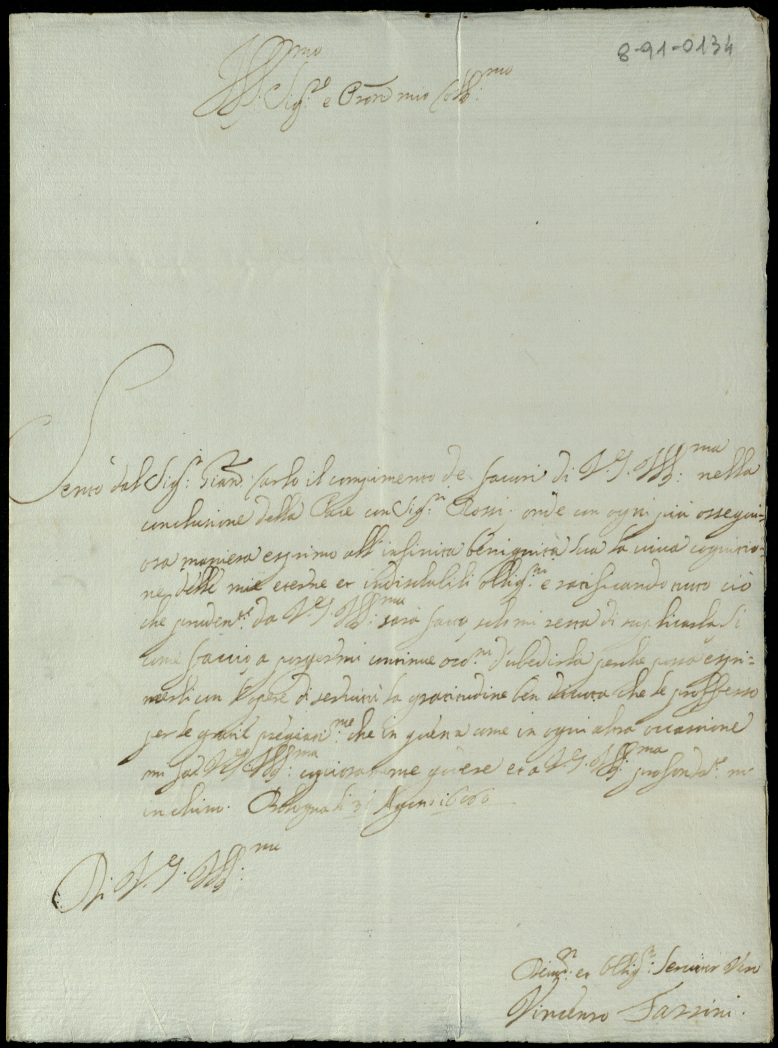 8-91-0134
Ill:mo Sig:re e Pron mio Coll:mo
Sento dal Sig:r Gian Carlo il compimento de favori di V.S. Ill:ma nella
conclusione della Pace con Sig:r Rossi, onde con ogni più ossequi=
osa maniera esprimo all'infinita benignità sua la viva cognitio=
ne delle mie eterne et indissolubili oblig:ni e ratificando tutto ciò
che da V.S. Ill:ma sarà solo mi resta di suplicarla si
come faccio a porgermi continue occ:ni d'ubedirla perche possa espri=
merli con l'opere di servitù la gratitudine ben che le professo
per le gratie che in questa come in ogni altra occasione
mi fa V.S. Ill:ma et a V.S. Ill:ma profonda:te m'
inchino. Bologna li 31
Di V.S. Ill:ma
Devo: et Oblig: Servitor Vero
Vincenzo Fassini.